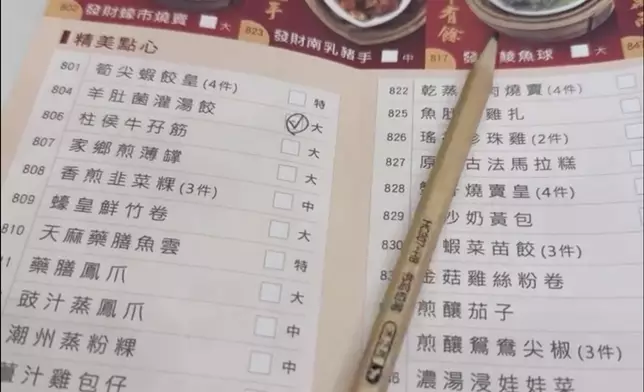 手
有餘
802 發財蠔市燒賣 大
823 發財南乳豬手 中
817 發 鯪魚球 大
精美點心
801 筍尖蝦餃皇(4件) 特
804 羊肚菌灌湯餃 大
806 柱侯牛孖筋 大
807 家鄉煎薄罉 大
808 香煎韭菜粿(3件) 中
809 蠔皇鮮竹卷 大
810 天麻藥膳魚雲 特
藥膳鳳爪 大
豉汁蒸鳳爪 中
潮州蒸粉粿 中
薑汁雞包仔
822 乾蒸 肉燒賣(4件)
825 魚肚 雞扎
826 瑤 珍珠雞(2件)
827 原 古法馬拉糕
828 燒賣皇(4件)
829 沙奶黃包
830 蝦菜苗餃(3件)
金菇雞絲粉卷
煎釀茄子
煎釀鴛鴦尖椒(3件)
濃湯浸娃娃菜